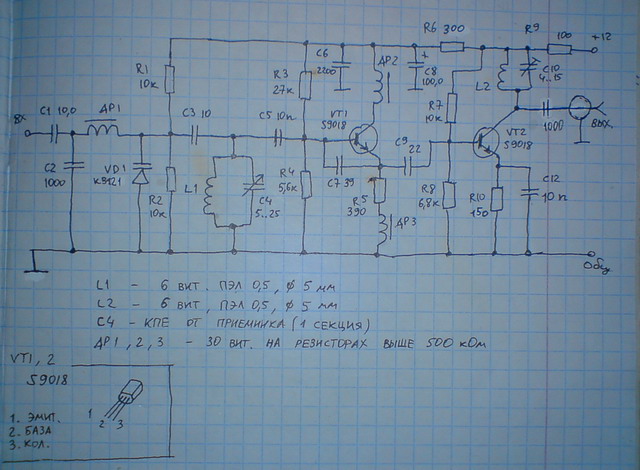 R6 300
R9
100
+12
R1
10к
R3
27к
C6
2200
ДР2
+
C8
100,0
L2
C10
4..15
Вх
C1 10,0
ДР1
C3 10
C5 10п
VT1
S9018
R7
10к
VT2
S9018
1000
ВЫХ.
C2
1000
VD1
КВ121
R2
10к
L1
C4
5..25
R4
5,6к
C7 39
C9
22
R5
390
ДР3
R8
6,8к
R10
150
C12
10 п
Общ
L1 – 6 ВИТ. ПЭЛ 0,5, ϕ 5 ММ
L2 – 6 ВИТ, ПЭЛ 0,5, ϕ 5 ММ
C4 – КПЕ ОТ ПРИЕМИНКА (1 СЕКЦИЯ)
ДР1, 2, 3 – 30 ВИТ. НА РЕЗИСТОРАХ ВЫШЕ 500 КОМ
VT1, 2
S9018
1. ЭМИТ.
2. БАЗА
3. КОЛ.
1
2
3